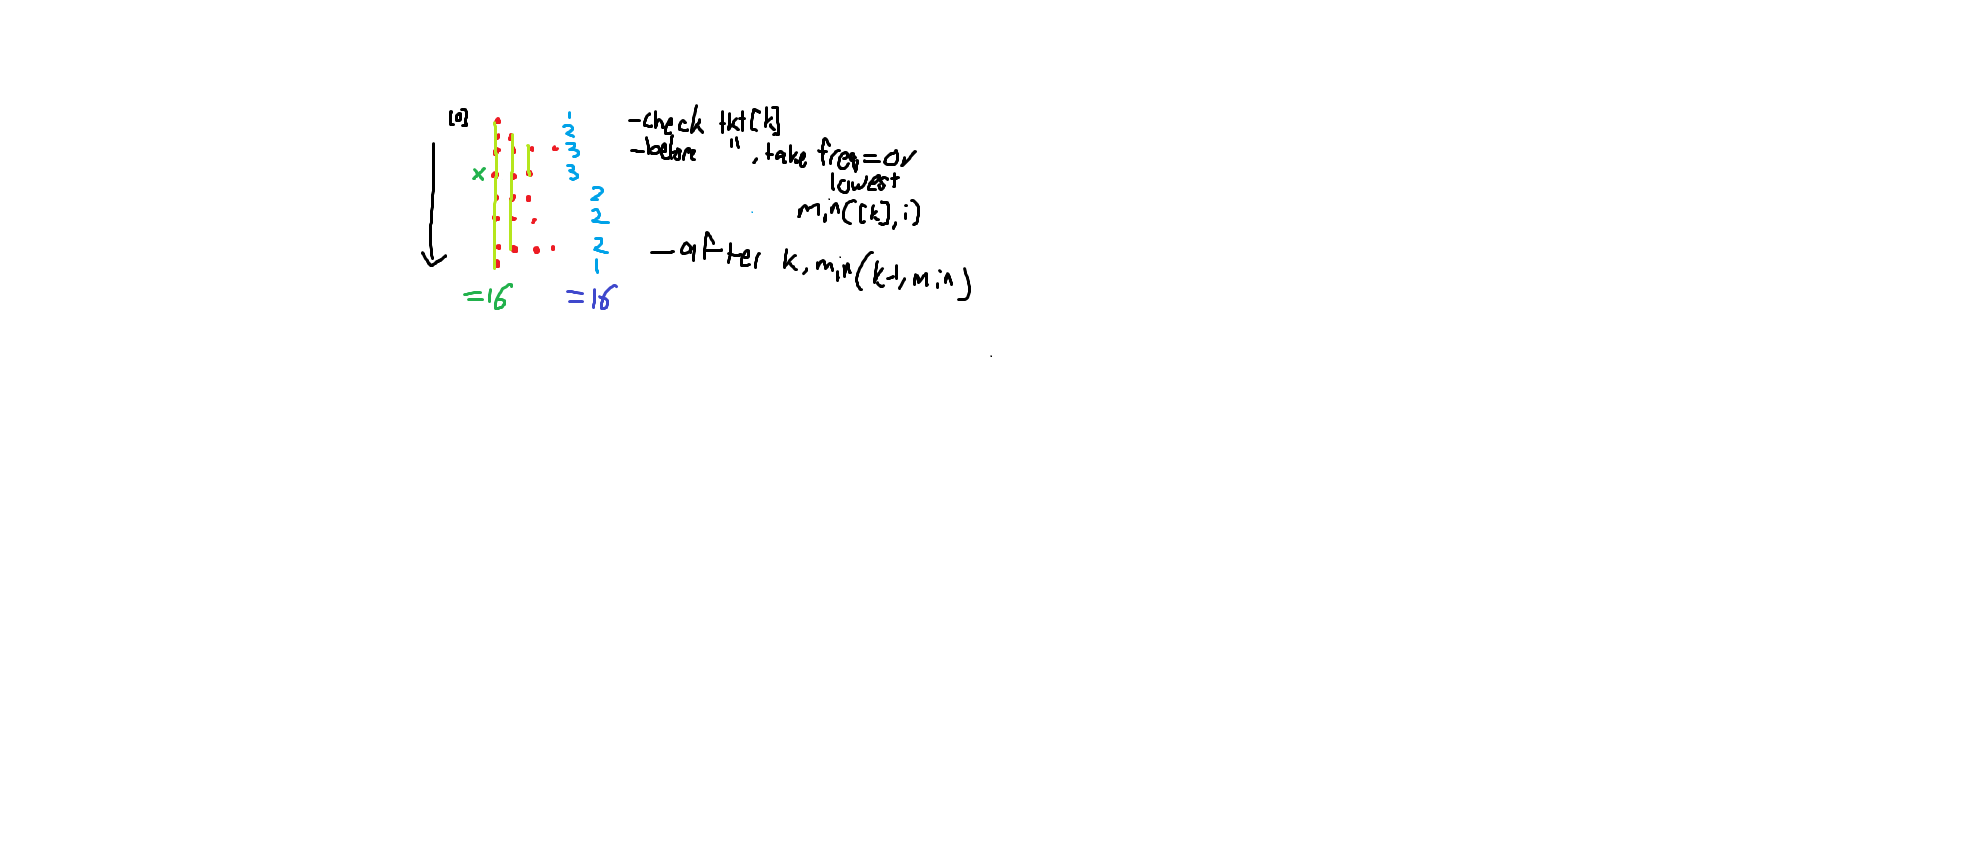 [0]
1
2
3
x 3
2
2
2
1
=16 =16
-check tkt[k]
-before ", take freq = or
lowest
min([k], i)
-after k, min(k-1, min)